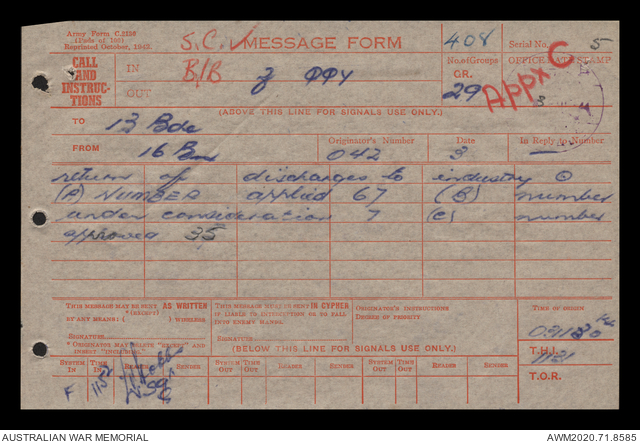 Army Form C.2136
(Pads of 100)
Reprinted October, 1942.
S.C. MESSAGE FORM
408
Serial No. 5
CALL AND INSTRUCTIONS
IN B/B
OUT
No. of Groups
GR.
29
OFFICE DATE STAMP
Appx C
(ABOVE THIS LINE FOR SIGNALS USE ONLY.)
TO 13 Bde
FROM 16 Bn
Originator's Number 042
Date 3
In Reply to Number
return of discharges to industry
(A) NUMBER applied 67 (B) number
under consideration 7 (C) number
approved 35
THIS MESSAGE MAY BE SENT AS WRITTEN
*(EXCEPT)
BY ANY MEANS: ( ) WIRELESS
SIGNATURE
* ORIGINATOR MAY DELETE "EXCEPT" AND INSERT "INCLUDING."
THIS MESSAGE MUST BE SENT IN CYPHER
IF LIABLE TO INTERCEPTION OR TO FALL INTO ENEMY HANDS.
SIGNATURE
ORIGINATOR'S INSTRUCTIONS
DEGREE OF PRIORITY
TIME OF ORIGIN
T.H.I.
1121
T.O.R.
(BELOW THIS LINE FOR SIGNALS USE ONLY.)
SYSTEM IN TIME IN READER SENDER SYSTEM OUT TIME OUT READER SENDER SYSTEM OUT TIME OUT READER SENDER
F 1152
AUSTRALIAN WAR MEMORIAL
AWM2020.71.8585